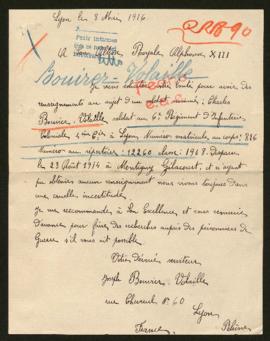 Lyon le 8 Mars 1916
PRB 90
A Son Altesse Royale Alphonse XIII
Bouvier-Volaille
Je vous
pour avoir des
renseignements au sujet d'un soldat Charles
Bouvier-Volaille soldat au 6e Régiment d'Infanterie
Coloniale, à Lyon Numéro matricule au corps: 816
Numéro au répertoire 12260 classe 1918. Disparu
le 23 Août 1914 à Montigny Gélacourt, et n'ayant
pu obtenir aucun renseignement nous vivons toujours dans
une cruelle incertitude.
Je me recommande à Son Excellence, et vous remercie
d'avance pour faire des recherches auprès des prisonniers de
Guerre s'il vous est possible.
Votre dévoué serviteur
Joseph Bouvier-Volaille
rue No 60
Lyon
France Rhône